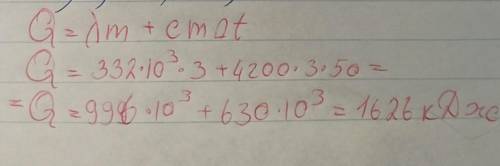 Q = λm + cmΔt
Q = 332·10³·3 + 4200·3·50 =
= Q = 996·10³ + 630·10³ = 1626 кДж